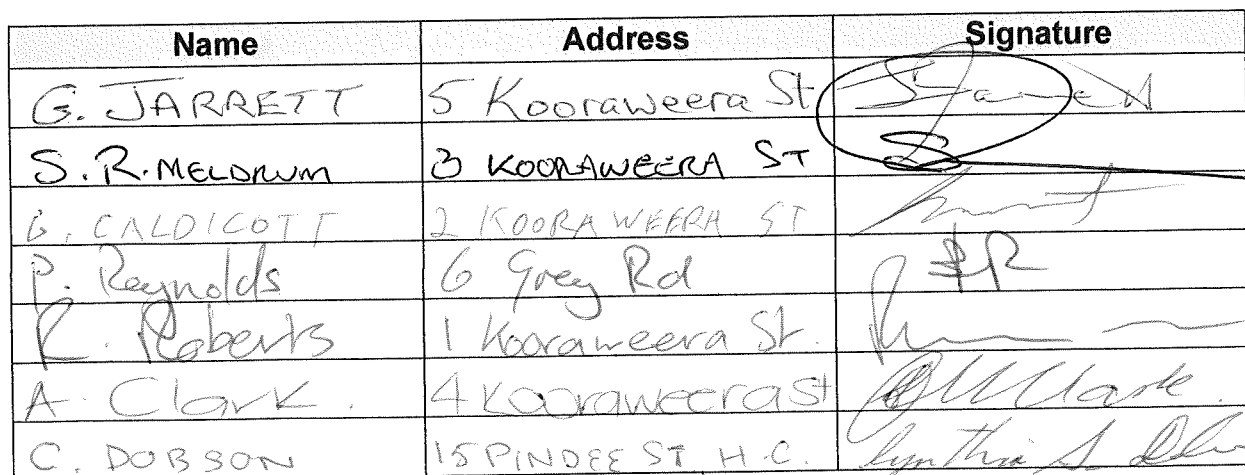 Name Address Signature
G. JARRETT 5 Kooraweera St
S. R. MELDRUM 3 KOORAWEERA ST
B. CALDICOTT 2 KOORAWEERA ST
P. Reynolds 6 Grey Rd PR
R. Roberts 1 Kooraweera St.
A. Clark. 4 Kooraweera St Clark.
C. DOBSON 15 PINDEE ST H.C. Cynthia